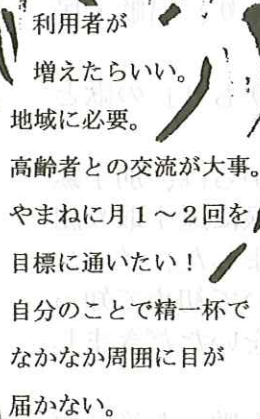 利用者が
増えたらいい。
地域に必要。
高齢者との交流が大事。
やまねに月１～２回を
目標に通いたい！
自分のことで精一杯で
なかなか周囲に目が
届かない。